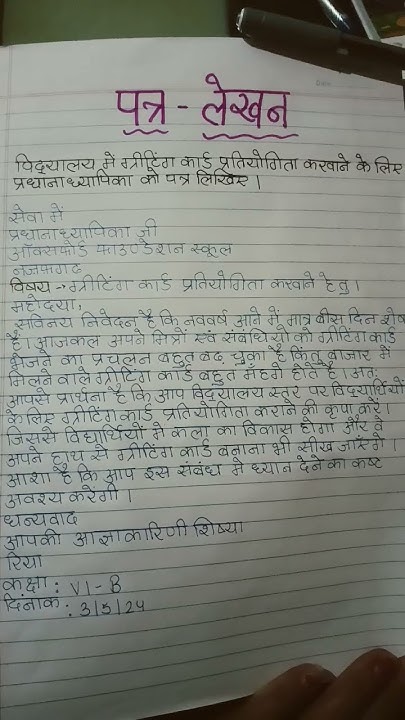 पत्र - लेखन
विद्यालय में ग्रीटिंग कार्ड प्रतियोगिता करवाने के लिए
प्रधानाध्यापिका को पत्र लिखिए ।
सेवा में
प्रधानाध्यापिका जी
ऑक्सफोर्ड फाउण्डेशन स्कूल
नजफगढ़
विषय → ग्रीटिंग कार्ड प्रतियोगिता करवाने हेतु ।
महोदया,
सविनय निवेदन है कि नववर्ष आने में मात्र बीस दिन शेष
है । आजकल अपने मित्रों एवं संबंधियों को ग्रीटिंग कार्ड
भेजने का प्रचलन बहुत बढ़ चुका है किंतु बाजार में
मिलने वाले ग्रीटिंग कार्ड बहुत मँहगे होते हैं । अतः
आपसे प्रार्थना है कि आप विद्यालय स्तर पर विद्यार्थियों
के लिए ग्रीटिंग कार्ड प्रतियोगिता कराने की कृपा करें ।
जिससे विद्यार्थियों में कला का विकास होगा और वे
अपने हाथ से ग्रीटिंग कार्ड बनाना भी सीख जाएँगे ।
आशा है कि आप इस संबंध में ध्यान देने का कष्ट
अवश्य करेंगी ।
धन्यवाद
आपकी आज्ञाकारिणी शिष्या
रिया
कक्षा : VI - B
दिनांक : 3/5/24